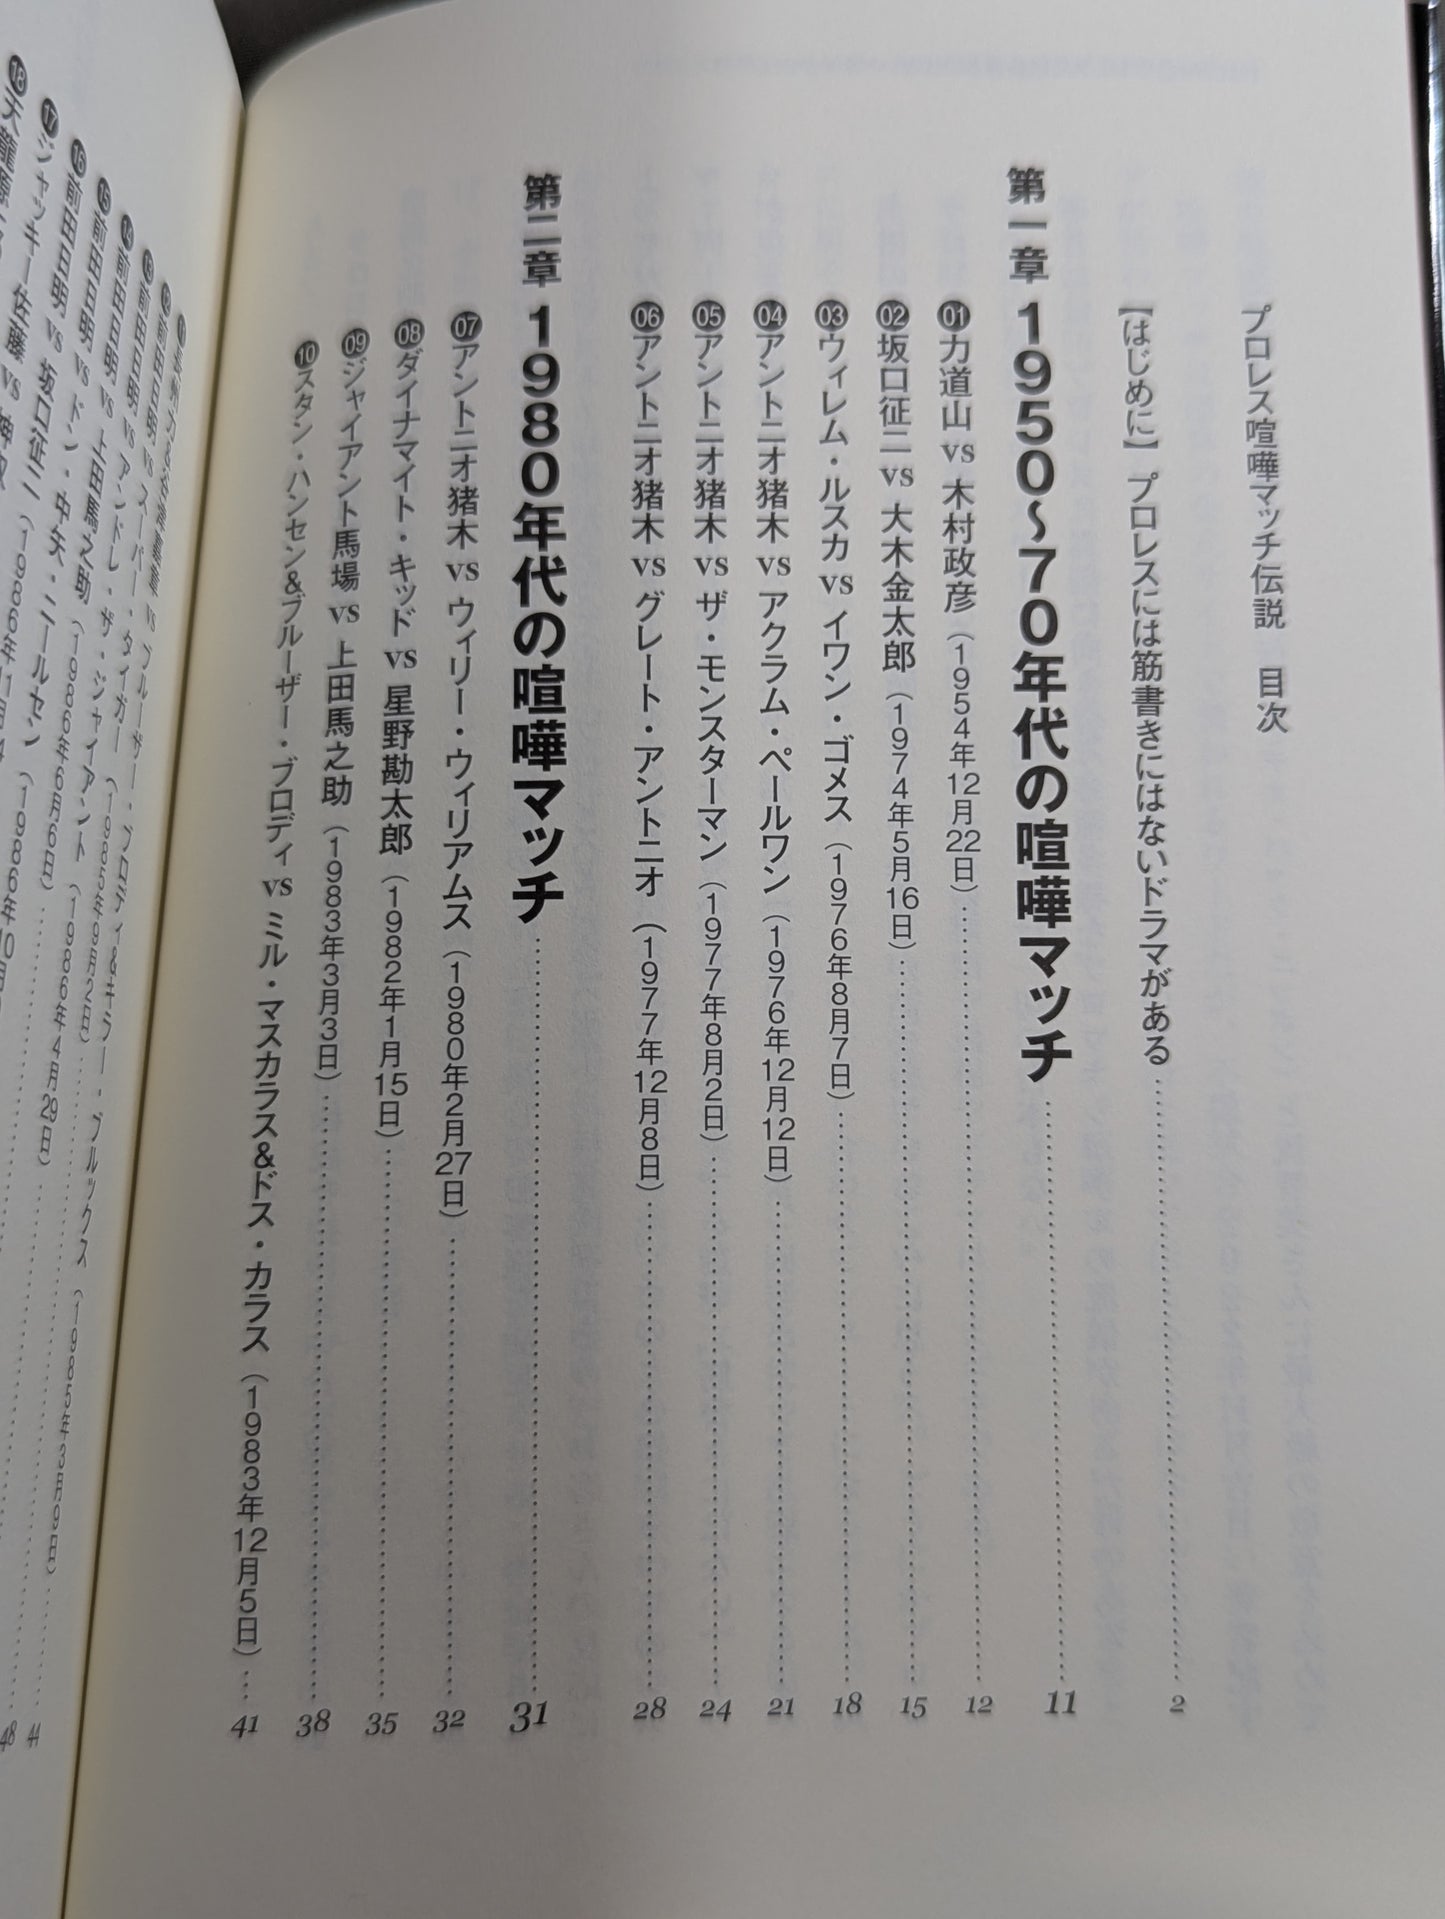 プロレス喧嘩マッチ伝説　目次
【はじめに】プロレスには筋書きにはないドラマがある…………2
第一章 1950〜70年代の喧嘩マッチ…………11
01 力道山 vs 木村政彦（1954年12月22日）…………12
02 坂口征二 vs 大木金太郎（1974年5月16日）…………15
03 ウィレム・ルスカ vs イワン・ゴメス（1976年8月7日）…………18
04 アントニオ猪木 vs アクラム・ペールワン（1976年12月12日）…………21
05 アントニオ猪木 vs ザ・モンスターマン（1977年8月2日）…………24
06 アントニオ猪木 vs グレート・アントニオ（1977年12月8日）…………28
第二章 1980年代の喧嘩マッチ…………31
07 アントニオ猪木 vs ウィリー・ウィリアムス（1980年2月27日）…………32
08 ダイナマイト・キッド vs 星野勘太郎（1982年1月15日）…………35
09 ジャイアント馬場 vs 上田馬之助（1983年3月3日）…………38
10 スタン・ハンセン&ブルーザー・ブロディ vs ミル・マスカラス&ドス・カラス（1983年12月5日）……41
vs ブルーザー・ブロディ&キラー・ブルックス（1985年3月9日）…………44
12 前田日明 vs スーパー・タイガー（1985年9月2日）…………48
13 前田日明 vs アンドレ・ザ・ジャイアント（1986年4月29日）
14 前田日明 vs 上田馬之助（1986年6月6日）
15 前田日明 vs ドン・中矢・ニールセン（1986年10月
16 前田日明 vs 坂口征二（1986年11月
17 ジャッキー佐藤 vs 神取
18 天龍源